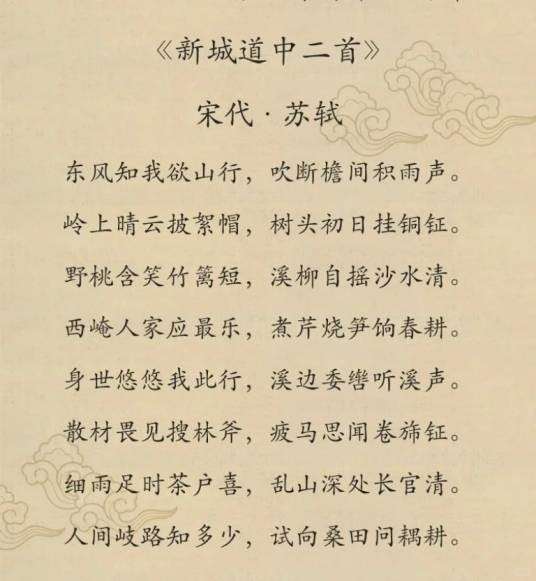 《新城道中二首》
宋代·苏轼
东风知我欲山行，吹断檐间积雨声。
岭上晴云披絮帽，树头初日挂铜钲。
野桃含笑竹篱短，溪柳自摇沙水清。
西崦人家应最乐，煮芹烧笋饷春耕。
身世悠悠我此行，溪边委辔听溪声。
散材畏见搜林斧，疲马思闻卷旆钲。
细雨足时茶户喜，乱山深处长官清。
人间岐路知多少，试向桑田问耦耕。